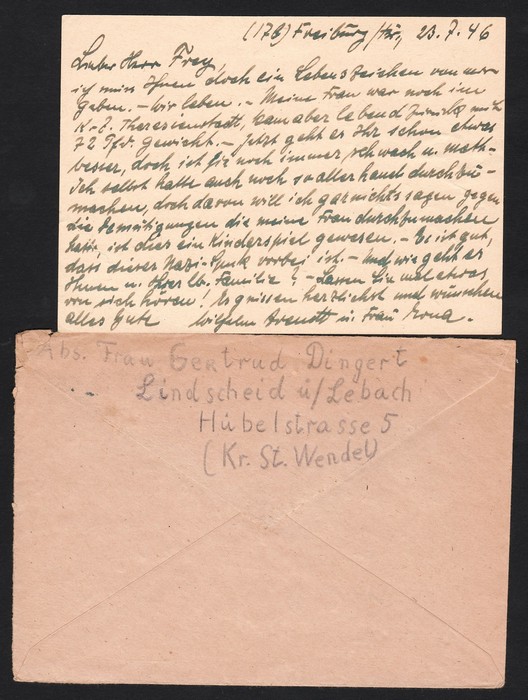 (17B) Freiburg /Br., 23.7.46
Lieber Herr Frey,
ich muss Ihnen doch ein Lebenszeichen von mir
geben. – Wir leben. – Meine Frau war noch im
K-Z. Theresienstadt, kam aber lebend zurück mit
72 Pfd. Gewicht. – Jetzt geht es Ihr schon etwas
besser, doch ist sie noch immer schwach u. matt.
Ich selbst hatte auch noch so allerhand durchzu-
machen, doch davon will ich gar nichts sagen gegen
die Demütigungen die meine Frau durchzumachen
hatte, ist dies ein Kinderspiel gewesen. – Es ist gut,
dass dieser Nazi-Spuk vorbei ist. – Und wie geht es
Ihnen u. Ihrer lb. Familie? – Lassen Sie mal etwas
von sich hören! Es grüssen herzlichst und wünschen
alles Gute Wilhelm u. Frau Erna.
Abs. Frau Gertrud Dingert
Lindscheid ü/Lebach
Hübelstrasse 5
(Kr. St. Wendel)